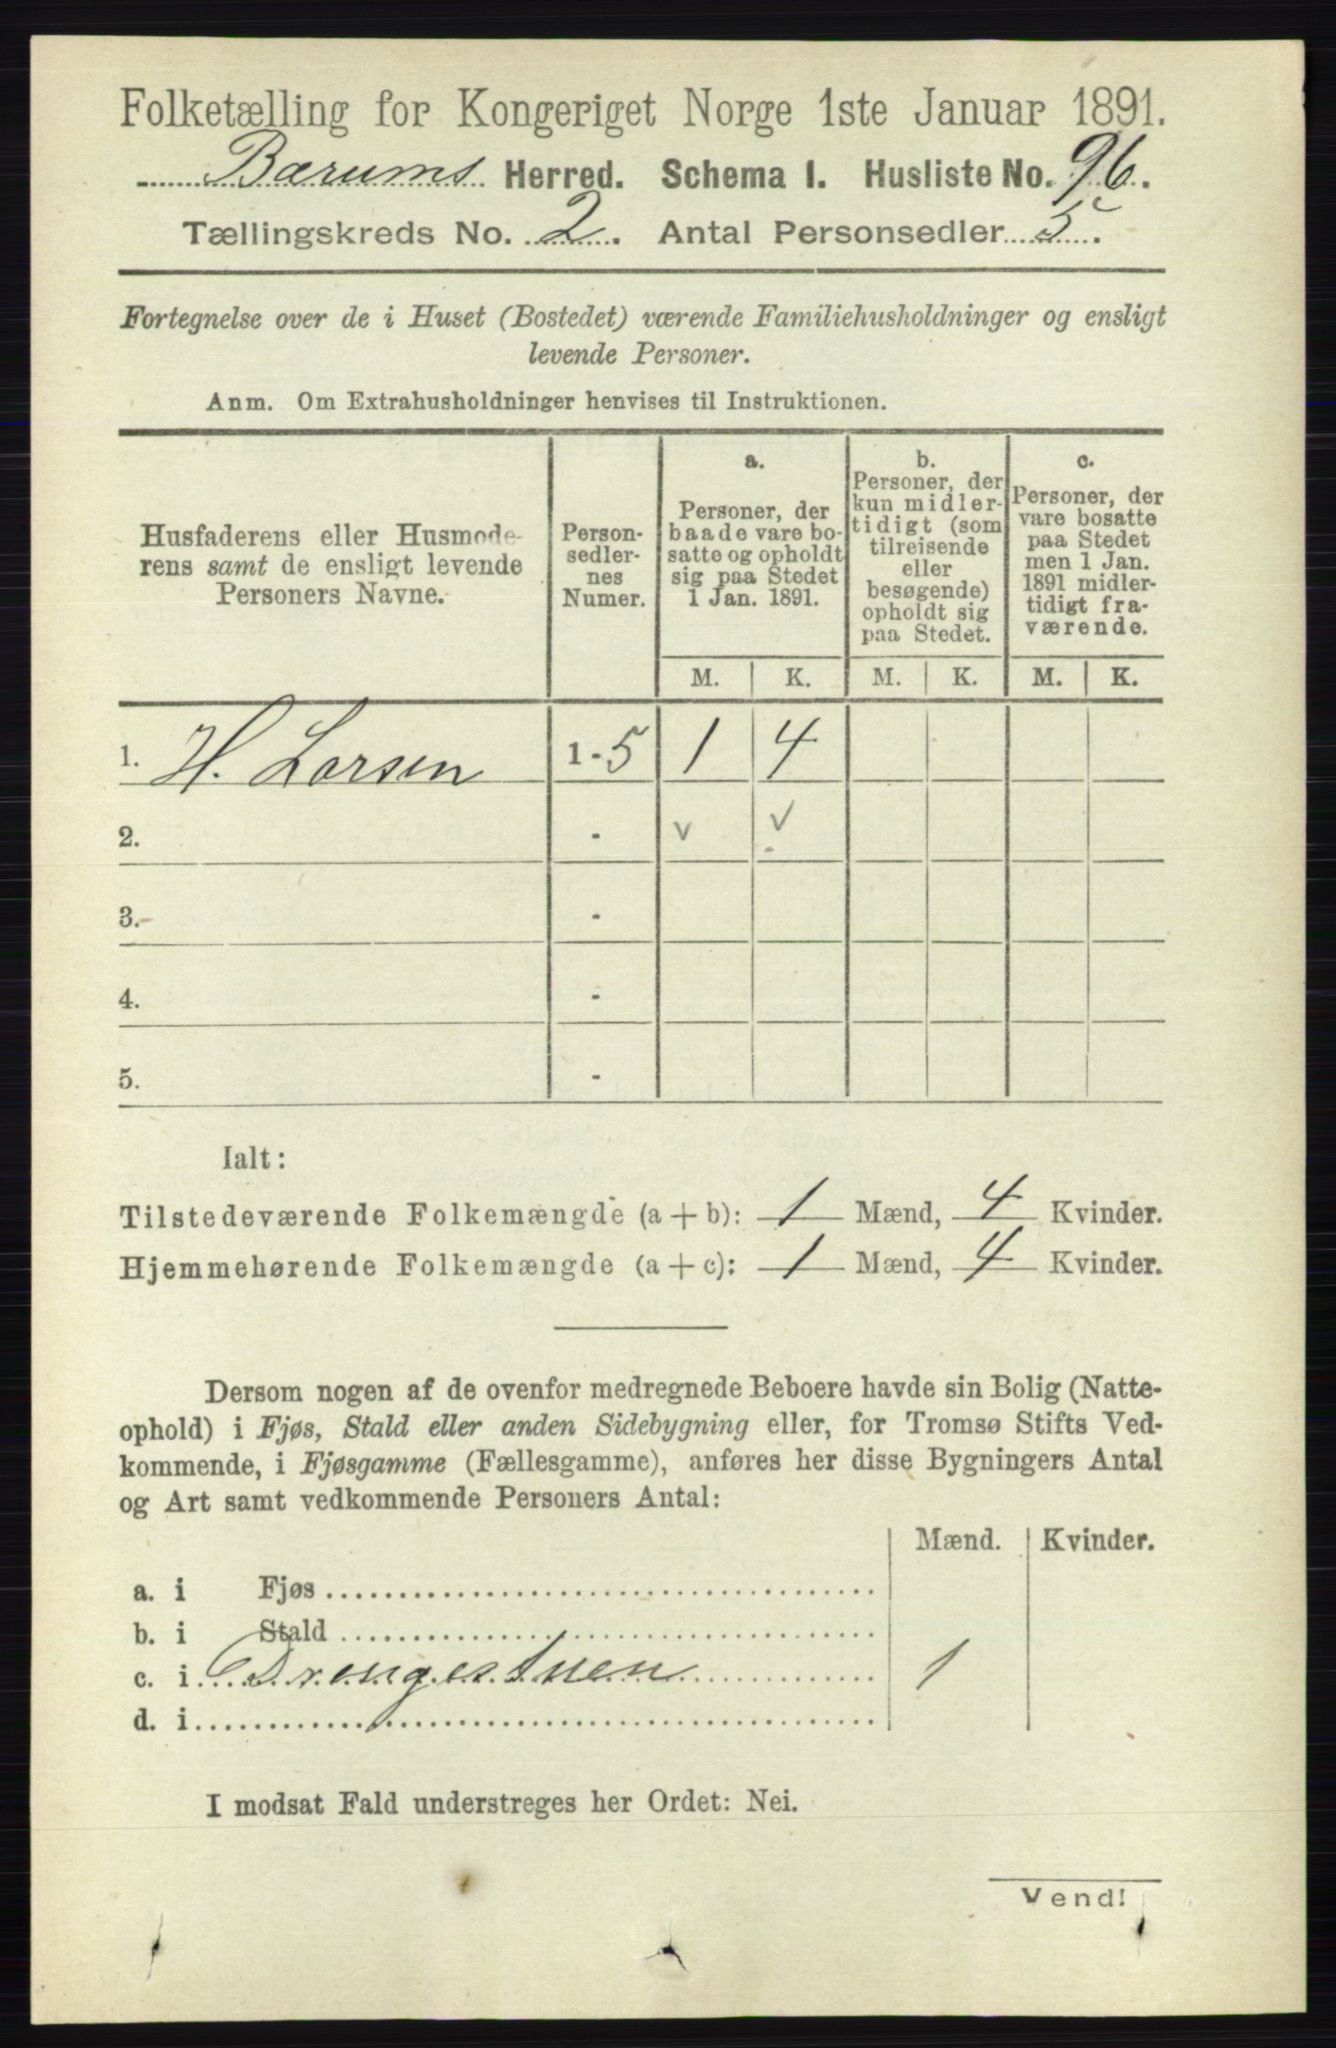 Folketælling for Kongeriget Norge 1ste Januar 1891.
Bærums Herred. Schema I. Husliste No. 96.
Tællingskreds No. 2. Antal Personsedler 5.
Fortegnelse over de i Huset (Bostedet) værende Familiehusholdninger og ensligt
levende Personer.
Anm. Om Extrahusholdninger henvises til Instruktionen.
Husfaderens eller Husmode-
rens samt de ensligt levende
Personers Navne.
Person-
sedler-
nes
Numer.
a.
Personer, der
baade vare bo-
satte og opholdt
sig paa Stedet
1 Jan. 1891.
b.
Personer, der
kun midler-
tidigt (som
tilreisende
eller
besøgende)
opholdt sig
paa Stedet.
c.
Personer, der
vare bosatte
paa Stedet
men 1 Jan.
1891 midler-
tidigt fra-
værende.
M. K. M. K. M. K.
1. H. Larsen 1-5 1 4
2. - v v
3. -
4. -
5. -
Ialt:
Tilstedeværende Folkemængde (a + b): 1 Mænd, 4 Kvinder.
Hjemmehørende Folkemængde (a + c): 1 Mænd, 4 Kvinder.
Dersom nogen af de ovenfor medregnede Beboere havde sin Bolig (Natte-
ophold) i Fjøs, Stald eller anden Sidebygning eller, for Tromsø Stifts Ved-
kommende, i Fjøsgamme (Fællesgamme), anføres her disse Bygningers Antal
og Art samt vedkommende Personers Antal:
Mænd. Kvinder.
a. i Fjøs
b. i Stald
c. i Drengestuen 1
d. i
I modsat Fald understreges her Ordet: Nei.
Vend!